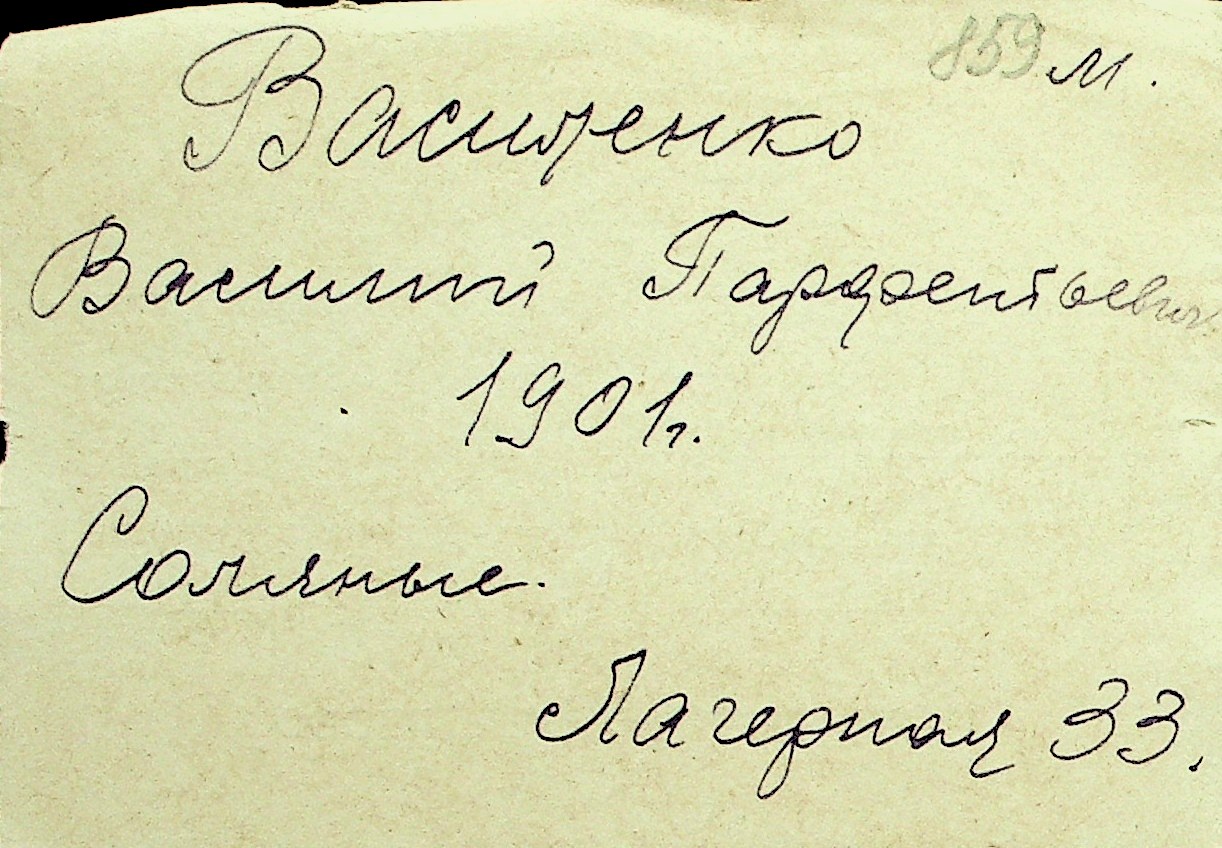 859 м.
Василенко
Василий Парфентьевич
1901г.
Соляные.
Лагерная 33.